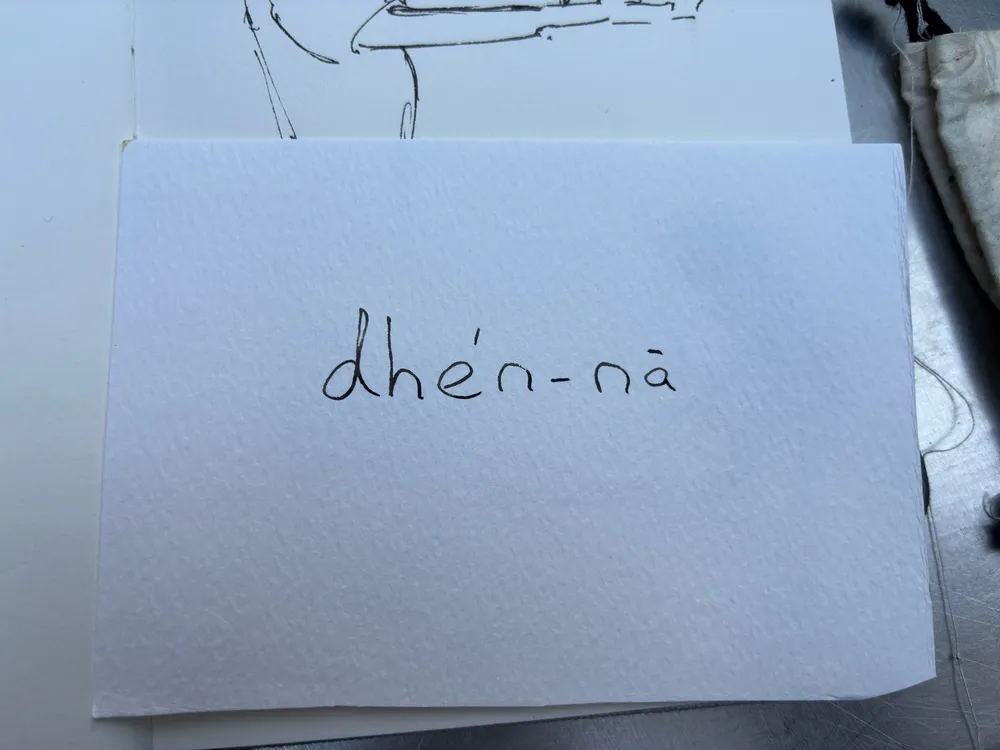 dhén-nā